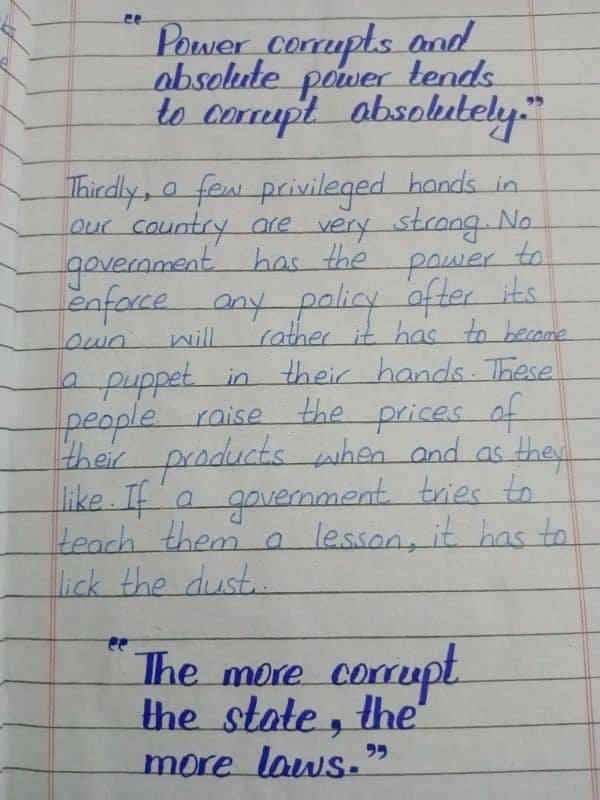 " Power corrupts and
absolute power tends
to corrupt absolutely."
Thirdly, a few privileged hands in
our country are very strong. No
government has the power to
enforce any policy after its
own will rather it has to become
a puppet in their hands. These
people raise the prices of
their products when and as they
like. If a government tries to
teach them a lesson, it has to
lick the dust.
" The more corrupt
the state, the
more laws."